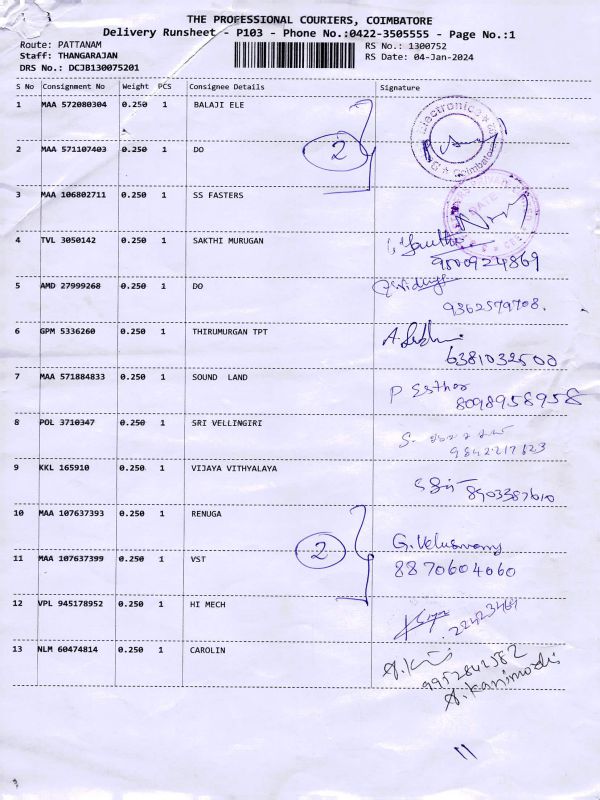 THE PROFESSIONAL COURIERS, COIMBATORE
Delivery Runsheet - P103 - Phone No.:0422-3505555 - Page No.:1
Route: PATTANAM RS No.: 1300752
Staff: THANGARAJAN RS Date: 04-Jan-2024
DRS No.: DCJB130075201
S No Consignment No Weight PCS Consignee Details Signature
1 MAA 572080304 0.250 1 BALAJI ELE
Electronics
Coimbatore
2 MAA 571107403 0.250 1 DO
2
3 MAA 106802711 0.250 1 SS FASTERS
4 TVL 3050142 0.250 1 SAKTHI MURUGAN
9500924869
5 AMD 27999268 0.250 1 DO
9362579708.
6 GPM 5336260 0.250 1 THIRUMURGAN TPT
6381032500
7 MAA 571884833 0.250 1 SOUND LAND P Esther
8098958958
8 POL 3710347 0.250 1 SRI VELLINGIRI
9842217823
9 KKL 165910 0.250 1 VIJAYA VITHYALAYA
8903387610
10 MAA 107637393 0.250 1 RENUGA
G. Veluswamy
2
11 MAA 107637399 0.250 1 VST 8870604060
12 VPL 945178952 0.250 1 HI MECH
13 NLM 60474814 0.250 1 CAROLIN
9952841582
A. Kanimozhi
11